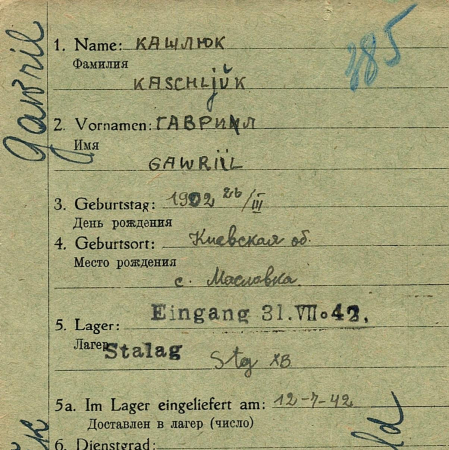 Gawril
385
1. Name: КАШЛЮК
Фамилия
KASCHLjŬK
2. Vornamen: ГАВРИИЛ
Имя
GAWRIIL
3. Geburtstag: 1902 26/III
День рождения
4. Geburtsort: Киевская об.
Место рождения
с. Масловка.
Eingang 31.VII.42.
5. Lager:
Лагерь
Stalag Stg XB
5a. Im Lager eingeliefert am: 12-7-42
Доставлен в лагерь (число)
6. Dienstgrad: